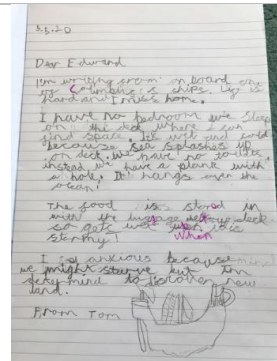 5.5.20
Dear Edward
I'm writing from on board one
of Columbus's ships. Life is
hard and I miss home.
I have no bedroom we sleep
on the deck where I can
find space. It's wet and cold
because sea splashes up
on deck. We have no toilets,
instead we have a plank with
a hole. It hangs over the
ocean!
The food is stored in
with the deck
so gets wet when it is
stormy!
When
I anxious because
we might starve but I'm
determind to discover new
land.
From Tom